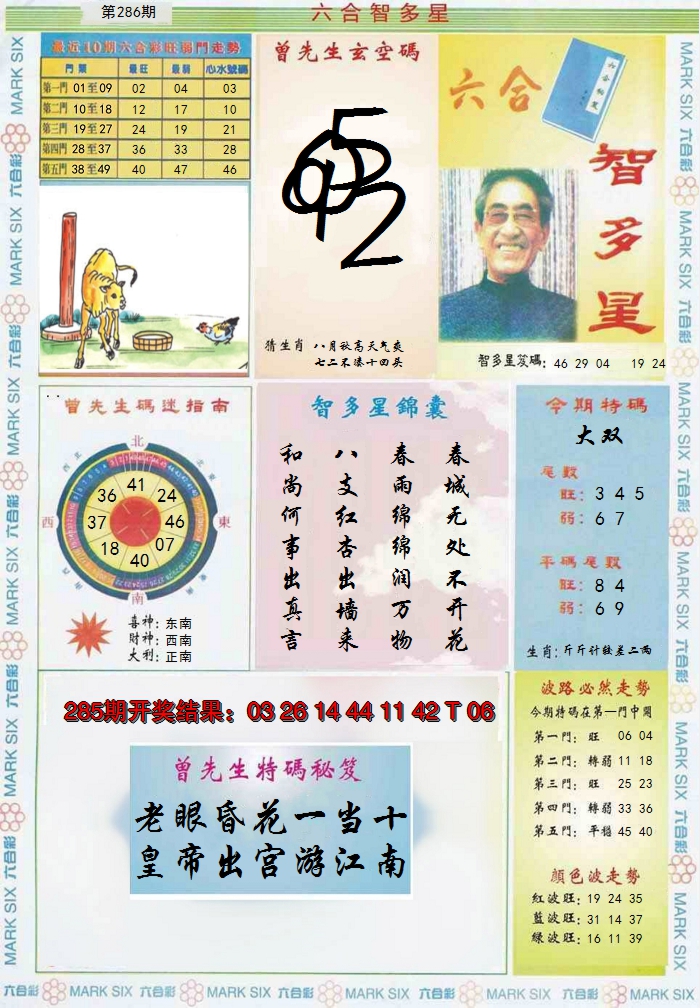 第286期
六合智多星
最近10期六合彩旺弱門走勢
門類 最旺 最弱 心水號碼
第一門 01至09 02 04 03
第二門 10至18 12 17 10
第三門 19至27 24 19 21
第四門 28至37 36 33 28
第五門 38至49 40 47 46
曾先生玄空碼
猜生肖 八月秋高天气爽
七二不凑十四头
六合
智多星
智多星笈碼: 46 29 04 19 24
曾先生碼迷指南
北
西北
東北
41
36 24
西 37 46 東
18 07
40
南
喜神: 东南
財神: 西南
大利: 正南
智多星錦囊
春城无处不开花
春雨绵绵润万物
八支红杏出墙来
和尚何事出真言
今期特碼
大双
尾數
旺: 3 4 5
弱: 6 7
平碼尾數
旺: 8 4
弱: 6 9
生肖: 斤斤计较差二两
285期开奖结果: 03 26 14 44 11 42 T 06
曾先生特碼秘笈
老眼昏花一当十
皇帝出宫游江南
波路必然走勢
今期特碼在第一門中開
第一門: 旺 06 04
第二門: 轉弱 11 18
第三門: 旺 25 23
第四門: 轉弱 33 36
第五門: 平穩 45 40
顏色波走勢
紅波旺: 19 24 35
藍波旺: 31 14 37
綠波旺: 16 11 39
六合彩 MARK SIX 六合彩 MARK SIX 六合彩 MARK SIX 六合彩 MARK SIX 六合彩